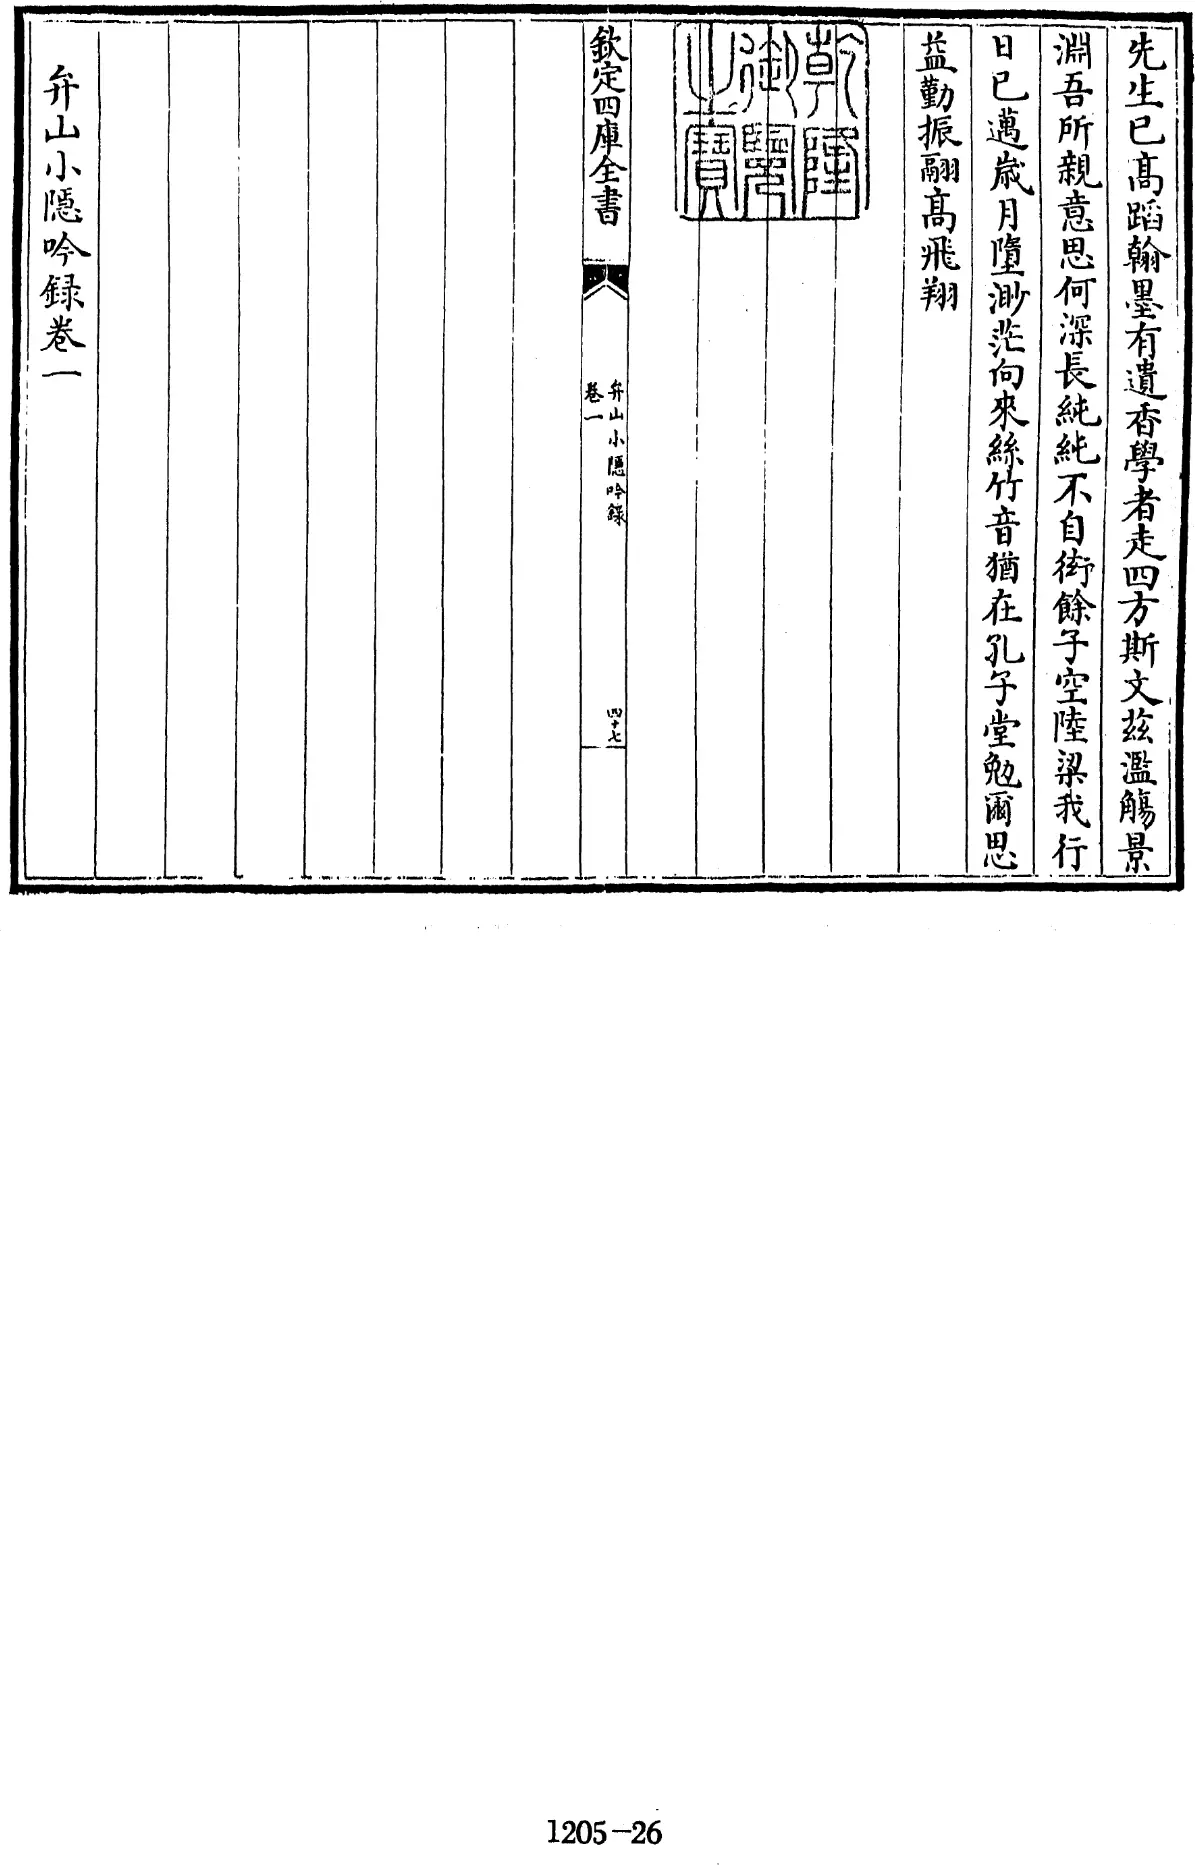 先生已髙蹈翰墨有遺香學者走四方斯文兹濫觴景
淵吾所親意思何深長純純不自衒餘子空陸梁我行
日已邁歳月墮渺茫向來絲竹音猶在孔子堂勉爾思
益勤振翮髙飛翔
乾隆
御覽
之寶
欽定四庫全書
弁山小隱吟錄
卷一
四十七
弁山小隱吟録卷一
1205-26